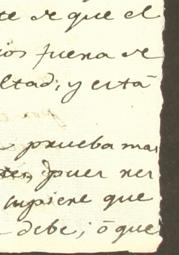 te de que el
ios fuera de
ltad; y está
prueba mas
puer ner
supiere que
debe; ò que